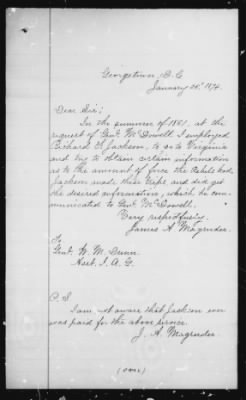 Georgetown, D.C.
January 26", 1874.
Dear Sir;
In the summer of 1861, at the
request of Genl. McDowell I employed
Richard H. Jackson, to go to Virginia
and try to obtain certain information
as to the amount of force the Rebels had.
Jackson made three trips, and did get
the desired information, which he com-
municated to Genl. McDowell.
Very respectfully,
James A Magruder.
To
Genl. W. M. Dunn
Asst. J. A. G.
P. S
I am not aware that Jackson ever
was paid for the above service.
J. A. Magruder.
(over)